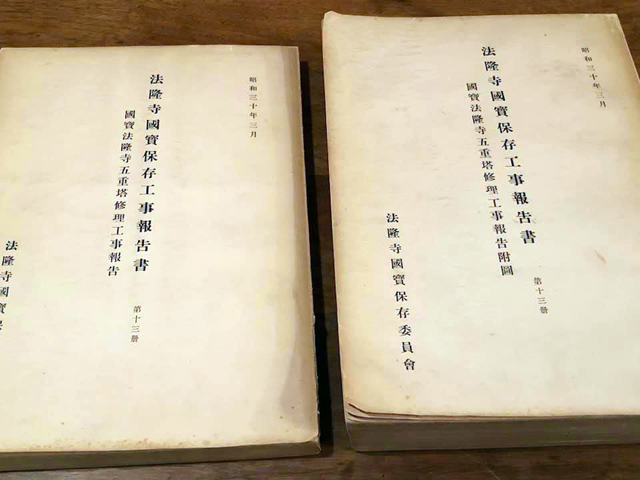 昭和三十年三月
法隆寺國寶保存工事報告書
國寶法隆寺五重塔修理工事報告
第十三册
法隆寺國寶保
昭和三十年三月
法隆寺國寶保存工事報告書
國寶法隆寺五重塔修理工事報告附圖
第十三册
法隆寺國寶保存委員會